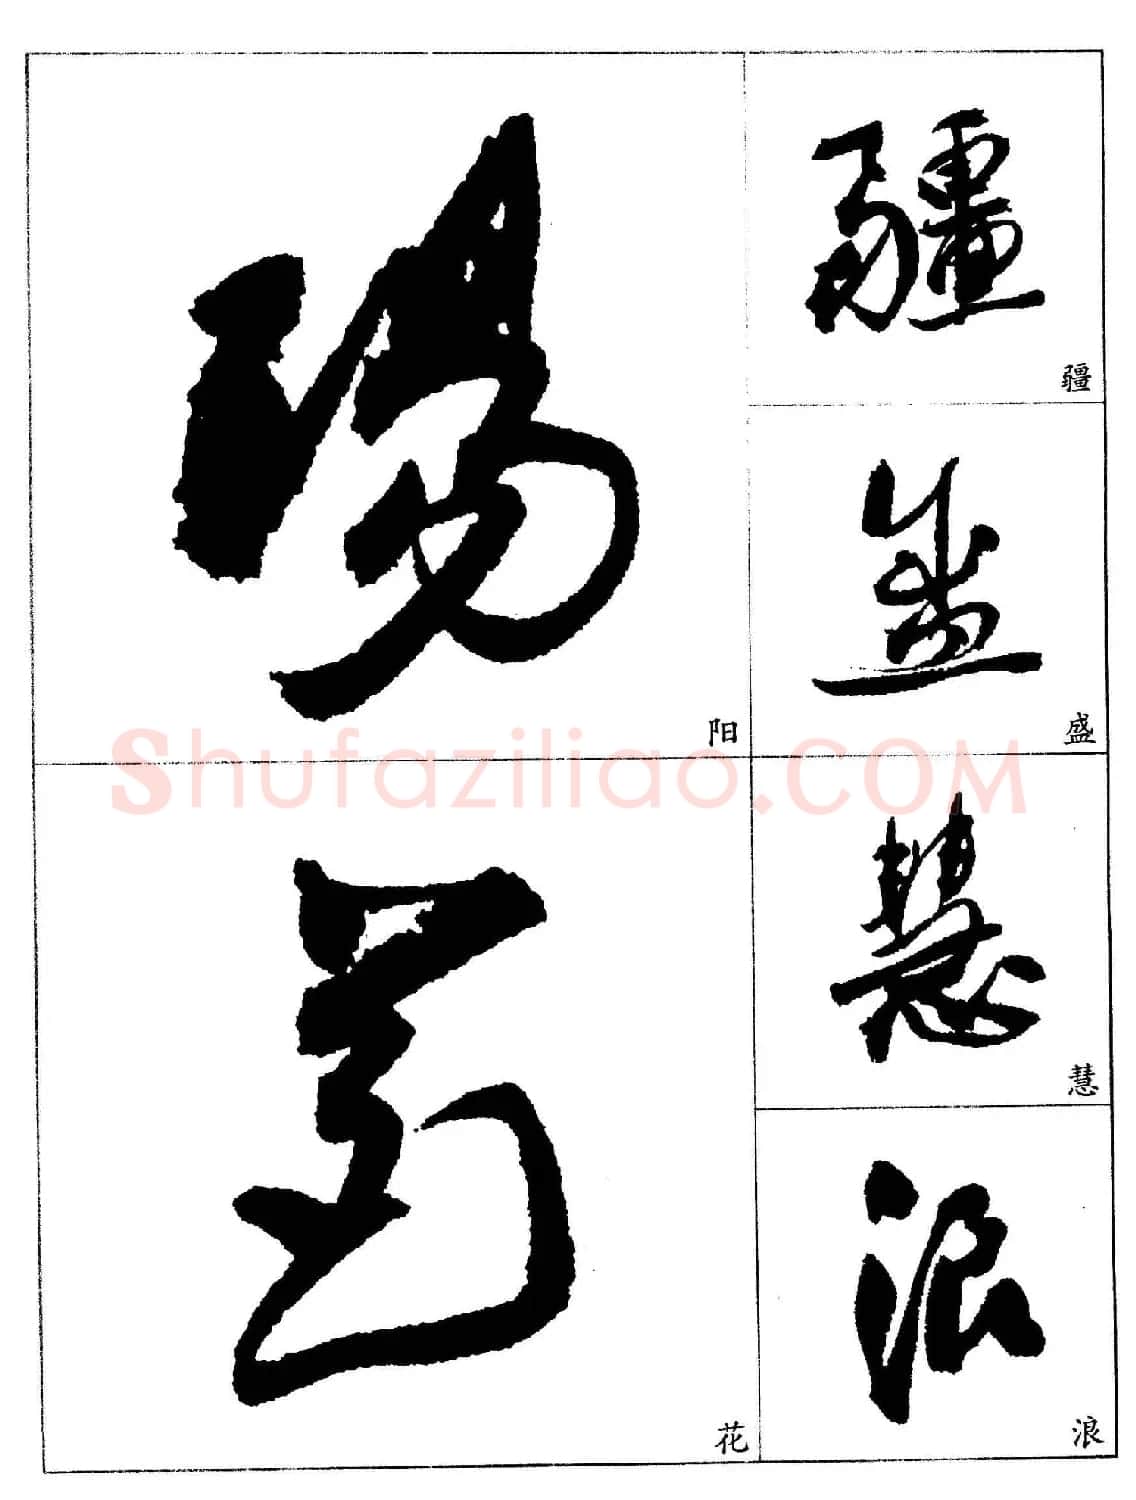 疆
疆
盛
盛
慧
慧
浪
浪
陽
阳
花
花
Shufaziliao.COM